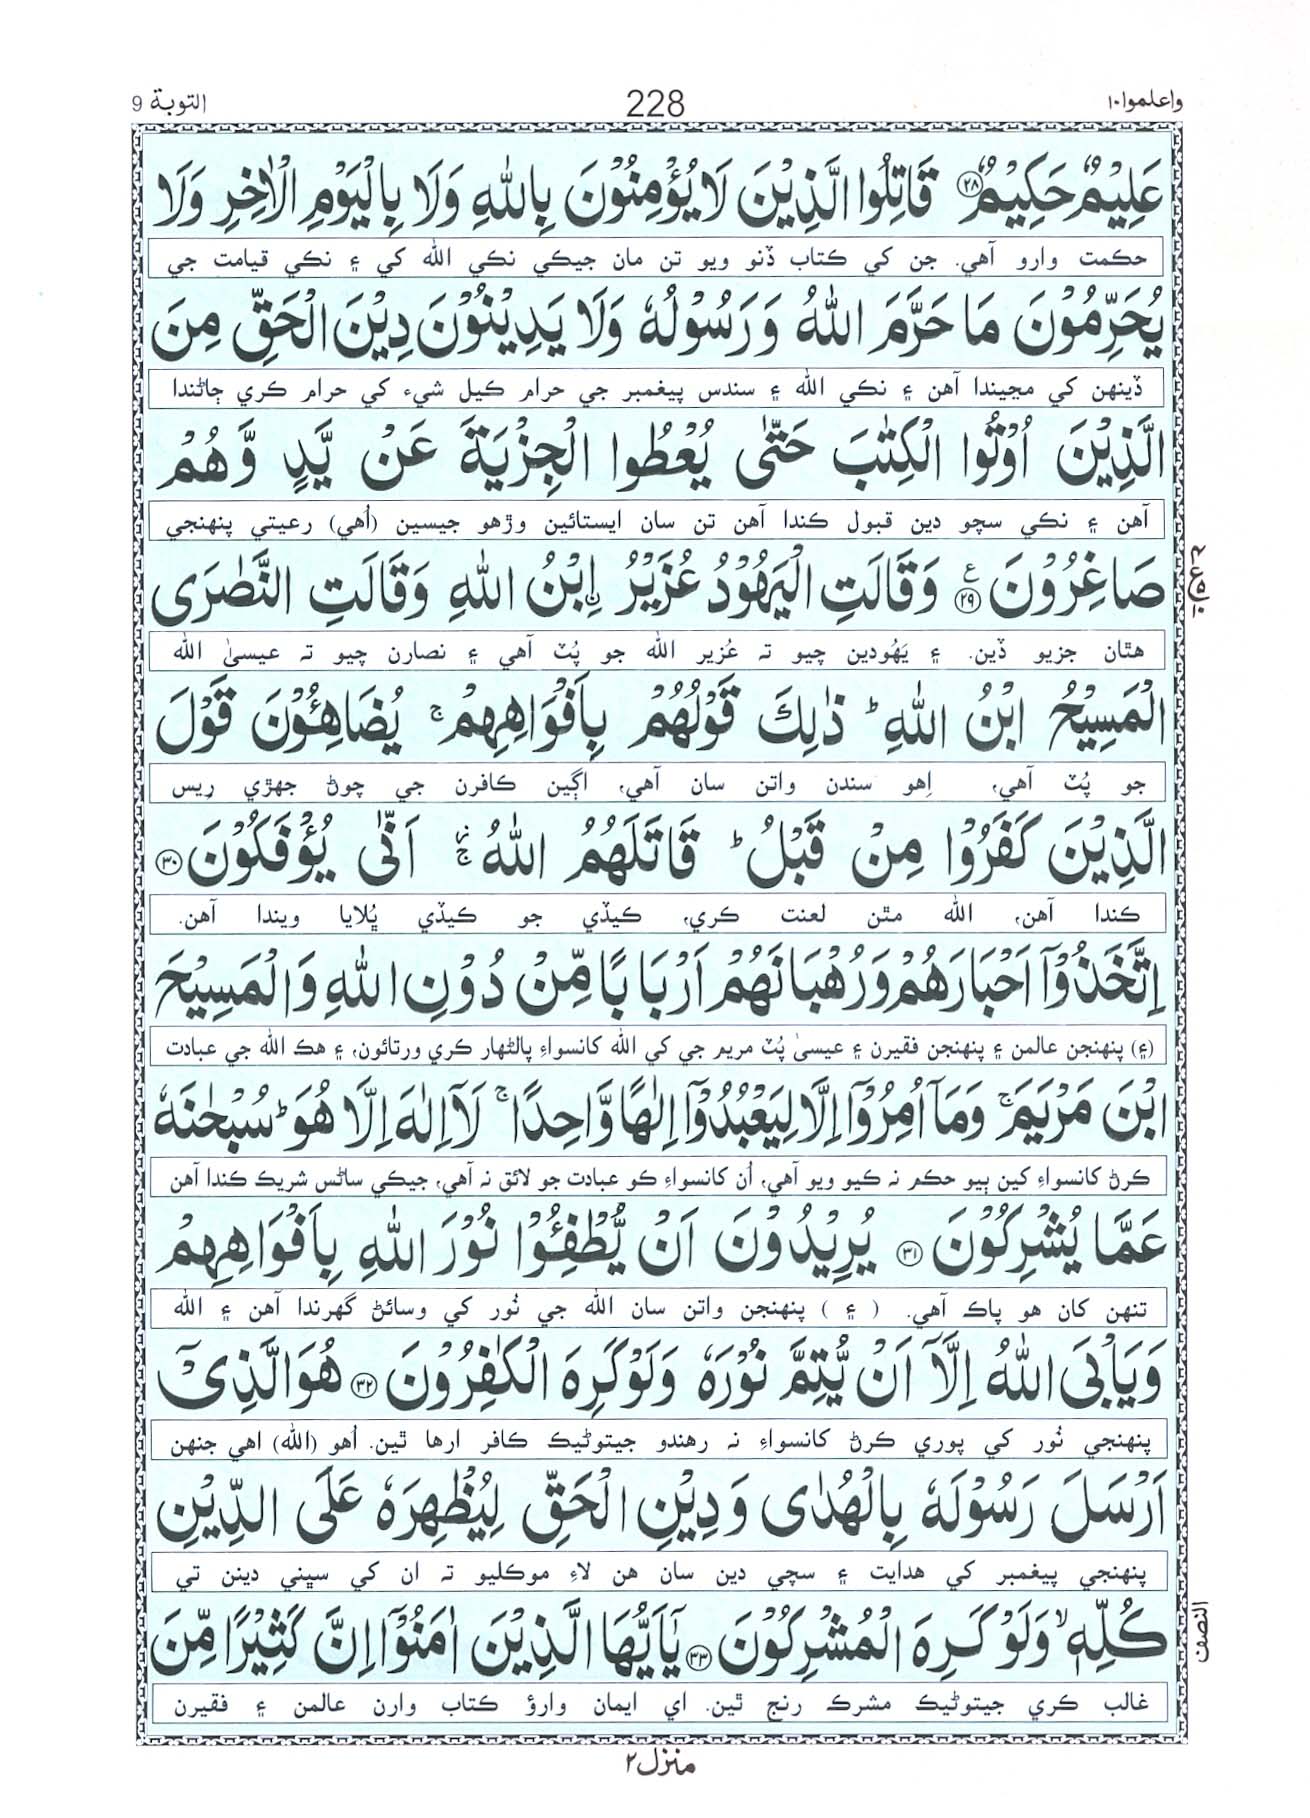 واعلموا۱۰
228
التوبة 9
عَلِيْمٌ حَكِيْمٌ ﴿۲۸﴾ قَاتِلُوا الَّذِيْنَ لَا يُؤْمِنُوْنَ بِاللّٰهِ وَلَا بِالْيَوْمِ الْاٰخِرِ وَلَا
حڪمت وارو آهي. جن کي ڪتاب ڏنو ويو تن مان جيڪي نڪي الله کي ۽ نڪي قيامت جي
يُحَرِّمُوْنَ مَا حَرَّمَ اللّٰهُ وَرَسُوْلُهٗ وَلَا يَدِيْنُوْنَ دِيْنَ الْحَقِّ مِنَ
ڏينهن کي مڃيندا آهن ۽ نڪي الله ۽ سندس پيغمبر جي حرام ڪيل شيء کي حرام ڪري ڄاڻندا
الَّذِيْنَ اُوْتُوا الْكِتٰبَ حَتّٰى يُعْطُوا الْجِزْيَةَ عَنْ يَّدٍ وَّهُمْ
آهن ۽ نڪي سچو دين قبول ڪندا آهن تن سان ايستائين وڙهو جيسين (اُهي) رعيتي پنهنجي
صَاغِرُوْنَ ﴿۲۹﴾ ع وَقَالَتِ الْيَهُوْدُ عُزَيْرُ ۨابْنُ اللّٰهِ وَقَالَتِ النَّصٰرَى
هٿان جزيو ڏين. ۽ يَهُودين چيو ته عُزير الله جو پُٽ آهي ۽ نصارن چيو ته عيسيٰ الله
الْمَسِيْحُ ابْنُ اللّٰهِ ؕ ذٰلِكَ قَوْلُهُمْ بِاَفْوَاهِهِمْ ۚ يُضَاهِـُٔوْنَ قَوْلَ
جو پُٽ آهي، اِهو سندن واتن سان آهي، اڳين ڪافرن جي چوڻ جهڙي ريس
الَّذِيْنَ كَفَرُوْا مِنْ قَبْلُ ؕ قَاتَلَهُمُ اللّٰهُ ۚ اَنّٰى يُؤْفَكُوْنَ ﴿۳۰﴾
ڪندا آهن، الله مٿن لعنت ڪري، ڪيڏي جو ڪيڏي ڀُلايا ويندا آهن.
اِتَّخَذُوْۤا اَحْبَارَهُمْ وَرُهْبَانَهُمْ اَرْبَابًا مِّنْ دُوْنِ اللّٰهِ وَالْمَسِيْحَ
(۽) پنهنجن عالمن ۽ پنهنجن فقيرن ۽ عيسيٰ پُٽ مريم جي کي الله کانسواءِ پالڻهار ڪري ورتائون، ۽ هڪ الله جي عبادت
ابْنَ مَرْيَمَ ۚ وَمَاۤ اُمِرُوْۤا اِلَّا لِيَعْبُدُوْۤا اِلٰهًا وَّاحِدًا ۚ لَاۤ اِلٰهَ اِلَّا هُوَ ؕ سُبْحٰنَهٗ
ڪرڻ کانسواءِ کين ٻيو حڪم نہ ڪيو ويو آهي، اُن کانسواءِ ڪو عبادت جو لائق نہ آهي، جيڪي ساڻس شريڪ ڪندا آهن
عَمَّا يُشْرِكُوْنَ ﴿۳۱﴾ يُرِيْدُوْنَ اَنْ يُّطْفِـُٔوْا نُوْرَ اللّٰهِ بِاَفْوَاهِهِمْ
تنهن کان هو پاڪ آهي. ( ۽ ) پنهنجن واتن سان الله جي نُور کي وسائڻ گهرندا آهن ۽ الله
وَيَاْبَى اللّٰهُ اِلَّاۤ اَنْ يُّتِمَّ نُوْرَهٗ وَلَوْ كَرِهَ الْكٰفِرُوْنَ ﴿۳۲﴾ هُوَ الَّذِيْۤ
پنهنجي نُور کي پوري ڪرڻ کانسواءِ نہ رهندو جيتوڻيڪ ڪافر ارها ٿين. اُهو (الله) اهي جنهن
اَرْسَلَ رَسُوْلَهٗ بِالْهُدٰى وَدِيْنِ الْحَقِّ لِيُظْهِرَهٗ عَلَى الدِّيْنِ
پنهنجي پيغمبر کي هدايت ۽ سچي دين سان هن لاءِ موڪليو ته ان کي سڀني دينن تي
كُلِّهٖ ۙ وَلَوْ كَرِهَ الْمُشْرِكُوْنَ ﴿۳۳﴾ يٰۤاَيُّهَا الَّذِيْنَ اٰمَنُوْۤا اِنَّ كَثِيْرًا مِّنَ
النصف
غالب ڪري جيتوڻيڪ مشرڪ رنج ٿين. اي ايمان وارؤ ڪتاب وارن عالمن ۽ فقيرن
منزل۲